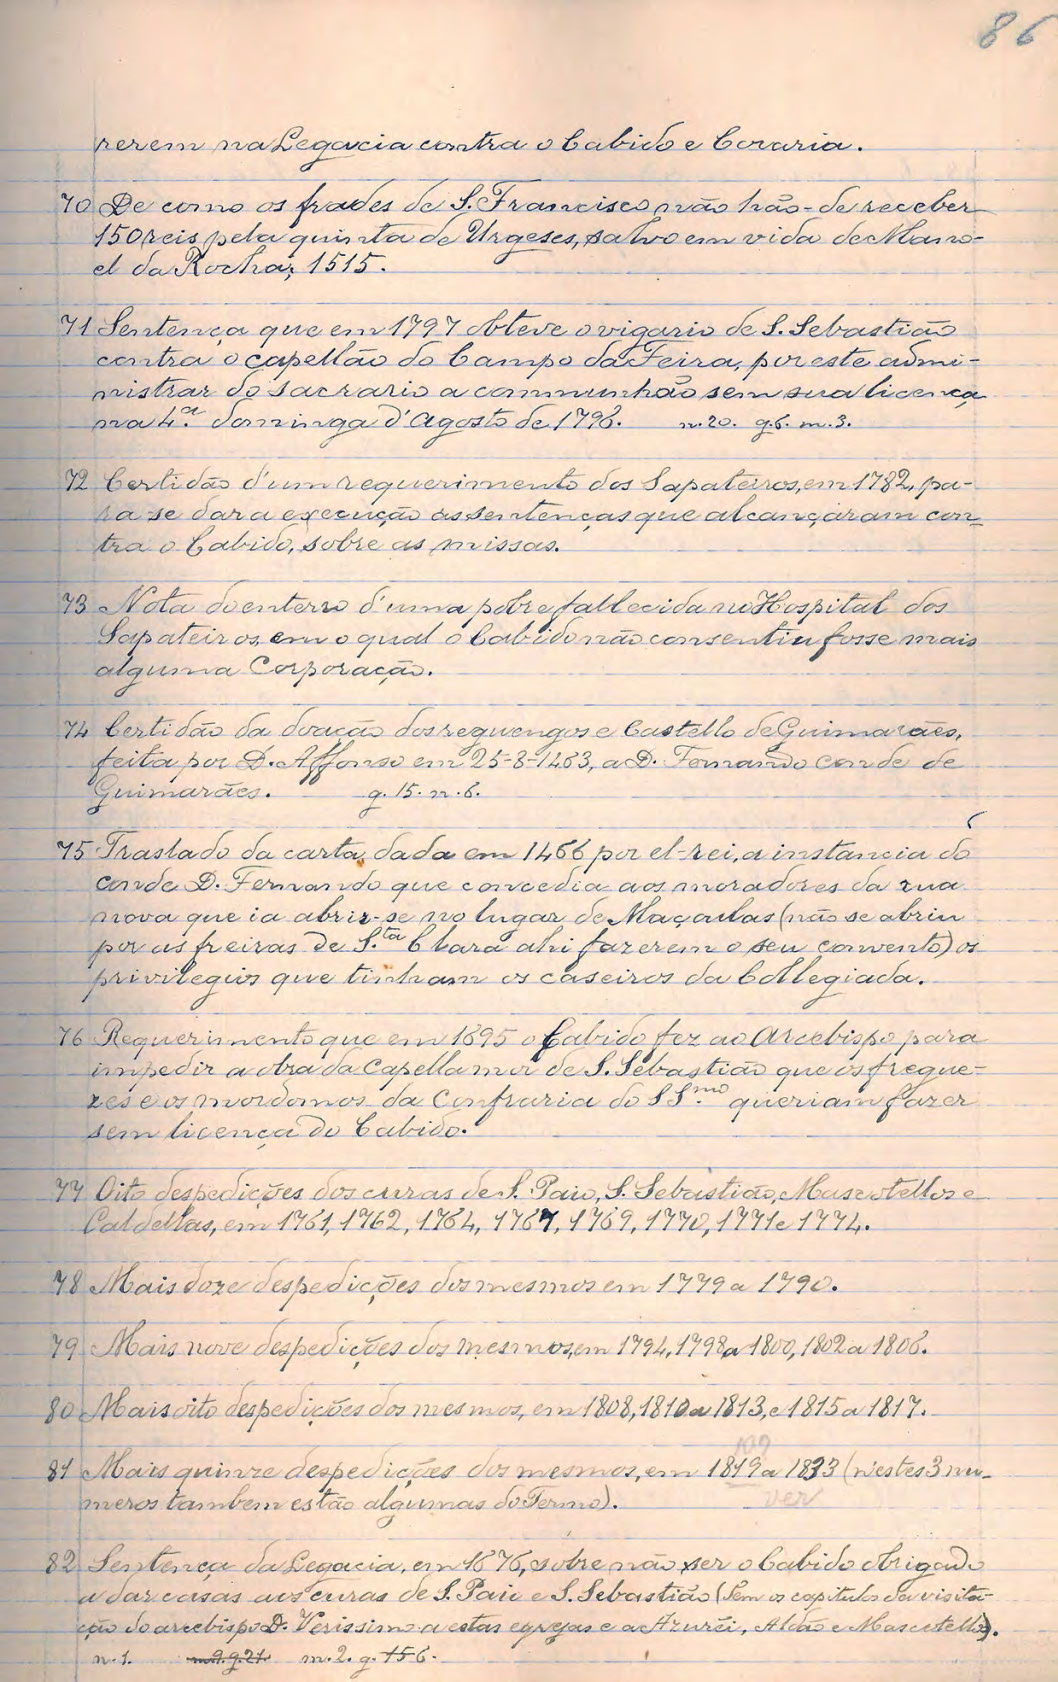 86
rerem na Legacia contra o Cabido e Coraria.
70 De como os frades de S. Francisco não hão-de receber
150 reis pela quinta de Urgeses, salvo em vida de Mano-
el da Rocha; 1515.
71 Sentença que em 1797 obteve o vigario de S. Sebastião
contra o capellão do Campo da Feira, por este admi-
nistrar do sacrario a communhão sem sua licença
na 4.ª dominga d'Agosto de 1796. n. 20. g. 6. m. 3.
72 Certidão d'um requerimento dos Sapateiros, em 1782, pa-
ra se dar a execução as sentenças que alcançaram con-
tra o Cabido, sobre as missas.
73 Nota do enterro d'uma pobre fallecida no Hospital dos
Sapateiros, em o qual o Cabido não consentiu fosse mais
alguma Corporação.
74 Certidão da doação dos reguengos e Castello de Guimarães,
feita por D. Affonso em 25-8-1463, a D. Fernando conde de
Guimarães. g. 15. n. 6.
75 Traslado da carta, dada em 1466 por el-rei, a instancia do
conde D. Fernando que concedia aos moradores da rua
nova que ia abrir-se no lugar de Maçoulas (não se abriu
por as freiras de S.ta Clara ahi fazerem o seu convento) os
privilegios que tinham os caseiros da Collegiada.
76 Requerimento que em 1695 o Cabido fez ao Arcebispo para
impedir a obra da Capella mor de S. Sebastião que os fregue-
zes e os mordomos da Confraria do SS.mo queriam fazer
sem licença do Cabido.
77 Oito despedições dos curas de S. Paio, S. Sebastião, Mascotellos e
Caldellas, em 1761, 1762, 1764, 1767, 1769, 1770, 1771 e 1774.
78 Mais doze despedições dos mesmos em 1779 a 1790.
79 Mais nove despedições dos mesmos, em 1794, 1798 a 1800, 1802 a 1806.
80 Mais oito despedições dos mesmos, em 1808, 1810 a 1813, e 1815 a 1817.
81 Mais quinze despedições dos mesmos, em 1819 a 1833 (n'estes 3 nu-
meros tambem estão algumas do Termo). ver
82 Sentença da Legacia, em 1676, sobre não ser o Cabido obrigado
a dar casas aos curas de S. Paio e S. Sebastião (Tem os capitulos da visita-
ção do arcebispo D. Verissimo a estas egrejas e a Azurei, Aldão e Mascotellos).
n. 1. m. 9. g. 21. m. 2. g. 156.